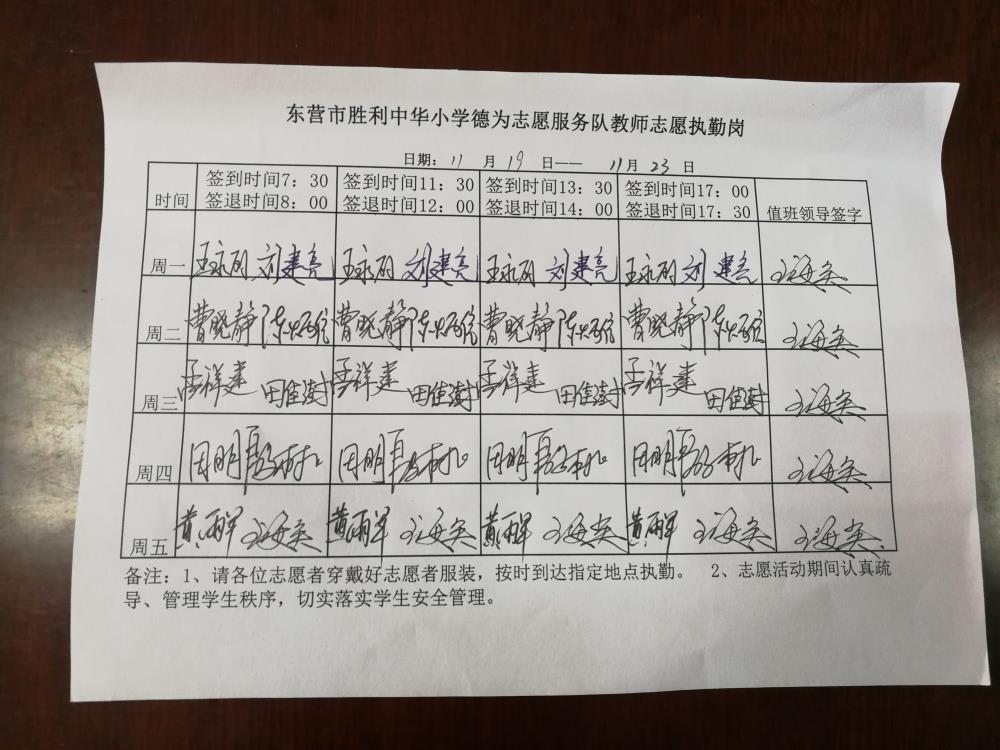 东营市胜利中华小学德为志愿服务队教师志愿执勤岗
日期：11 月 19 日—— 11月 23 日
时间 签到时间7：30 签到时间11：30 签到时间13：30 签到时间17：00 值班领导签字
签退时间8：00 签退时间12：00 签退时间14：00 签退时间17：30
周一 王永刚 刘建亮 王永刚 刘建亮 王永刚 刘建亮 王永刚 刘建亮 王海英
周二 曹晓静 曹晓静 曹晓静 曹晓静 王海英
周三 李祥建 田佳澍 李祥建 田佳澍 李祥建 田佳澍 李祥建 田佳澍 王海英
周四 王海英
周五 黄丽군 王海英 王海英 王海英 王海英 王海英
备注：1、请各位志愿者穿戴好志愿者服装，按时到达指定地点执勤。 2、志愿活动期间认真疏
导、管理学生秩序，切实落实学生安全管理。